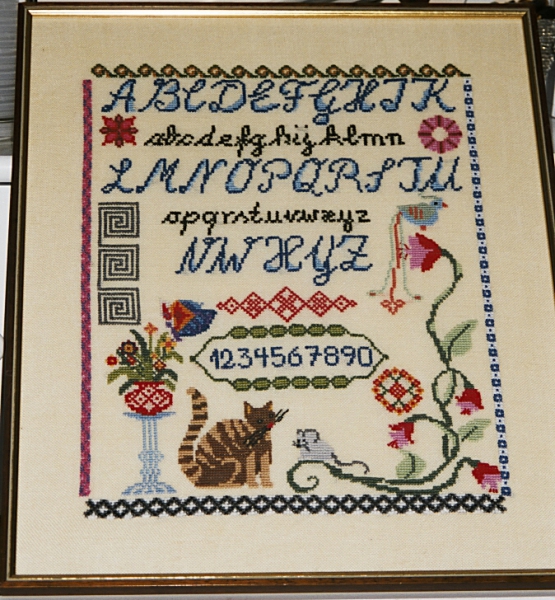 ABCDEFGHIJK
abcdefghijklmn
LMNOPQRSTU
opqrstuvwxyz
VWXYZ
1234567890